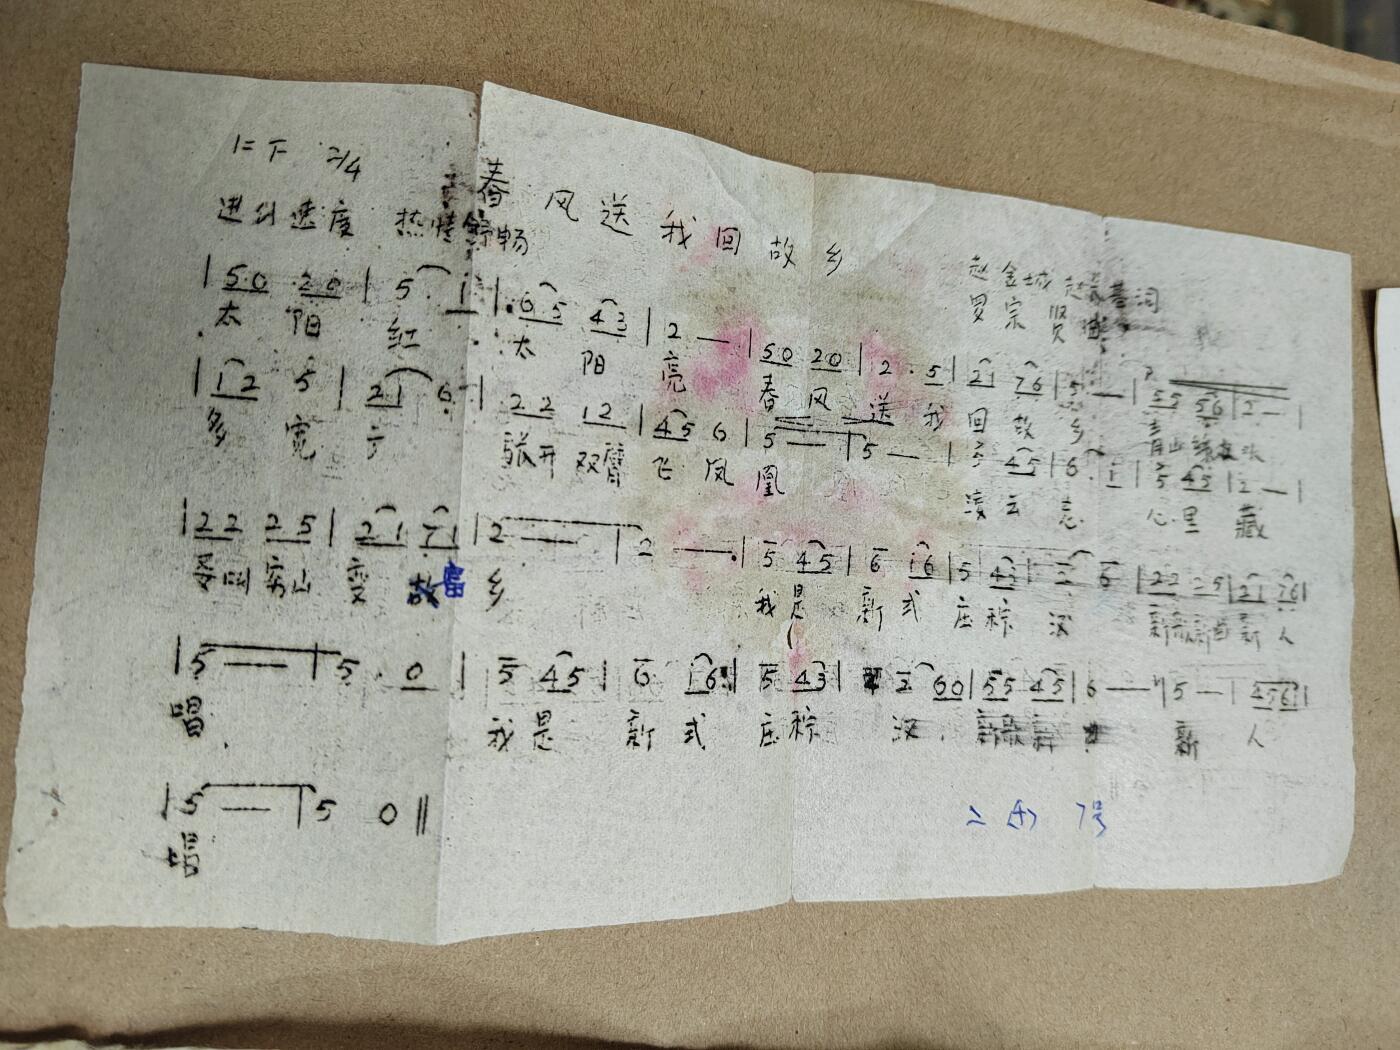 1=F 2/4
春风送我回故乡
进行速度 热情舒畅
赵金城 赵 词
罗宗贤 曲
| 50 20 | 5. i | 65 43 | 2 — | 50 20 | 2.5 | 21 76 | 5 — | 55 56 | 2 — |
太阳红 太阳亮 春风送我回故乡 青山绿水
| 12 5 | 21 6 | 22 12 | 45 6 | 5 — | 5 — | 5 45 | 6. i | 5 45 | 2 — |
多宽广 张开双臂飞凤凰 凌云志 心里藏
| 22 25 | 21 71 | 2 — | 2 — | 5 45 | 6 i6 | 5 43 | 2 6 | 22 25 | 21 76 |
变故富乡 我是新式庄稼汉 新歌新曲新人
| 5 — | 5. 0 | 5 45 | 6 i6 | 5 43 | 2 60 | 55 45 | 6 — | 5 — | 4561 |
唱 我是新式庄稼汉 新歌新曲 新人
| 5 — | 5 0 ‖
唱
7号